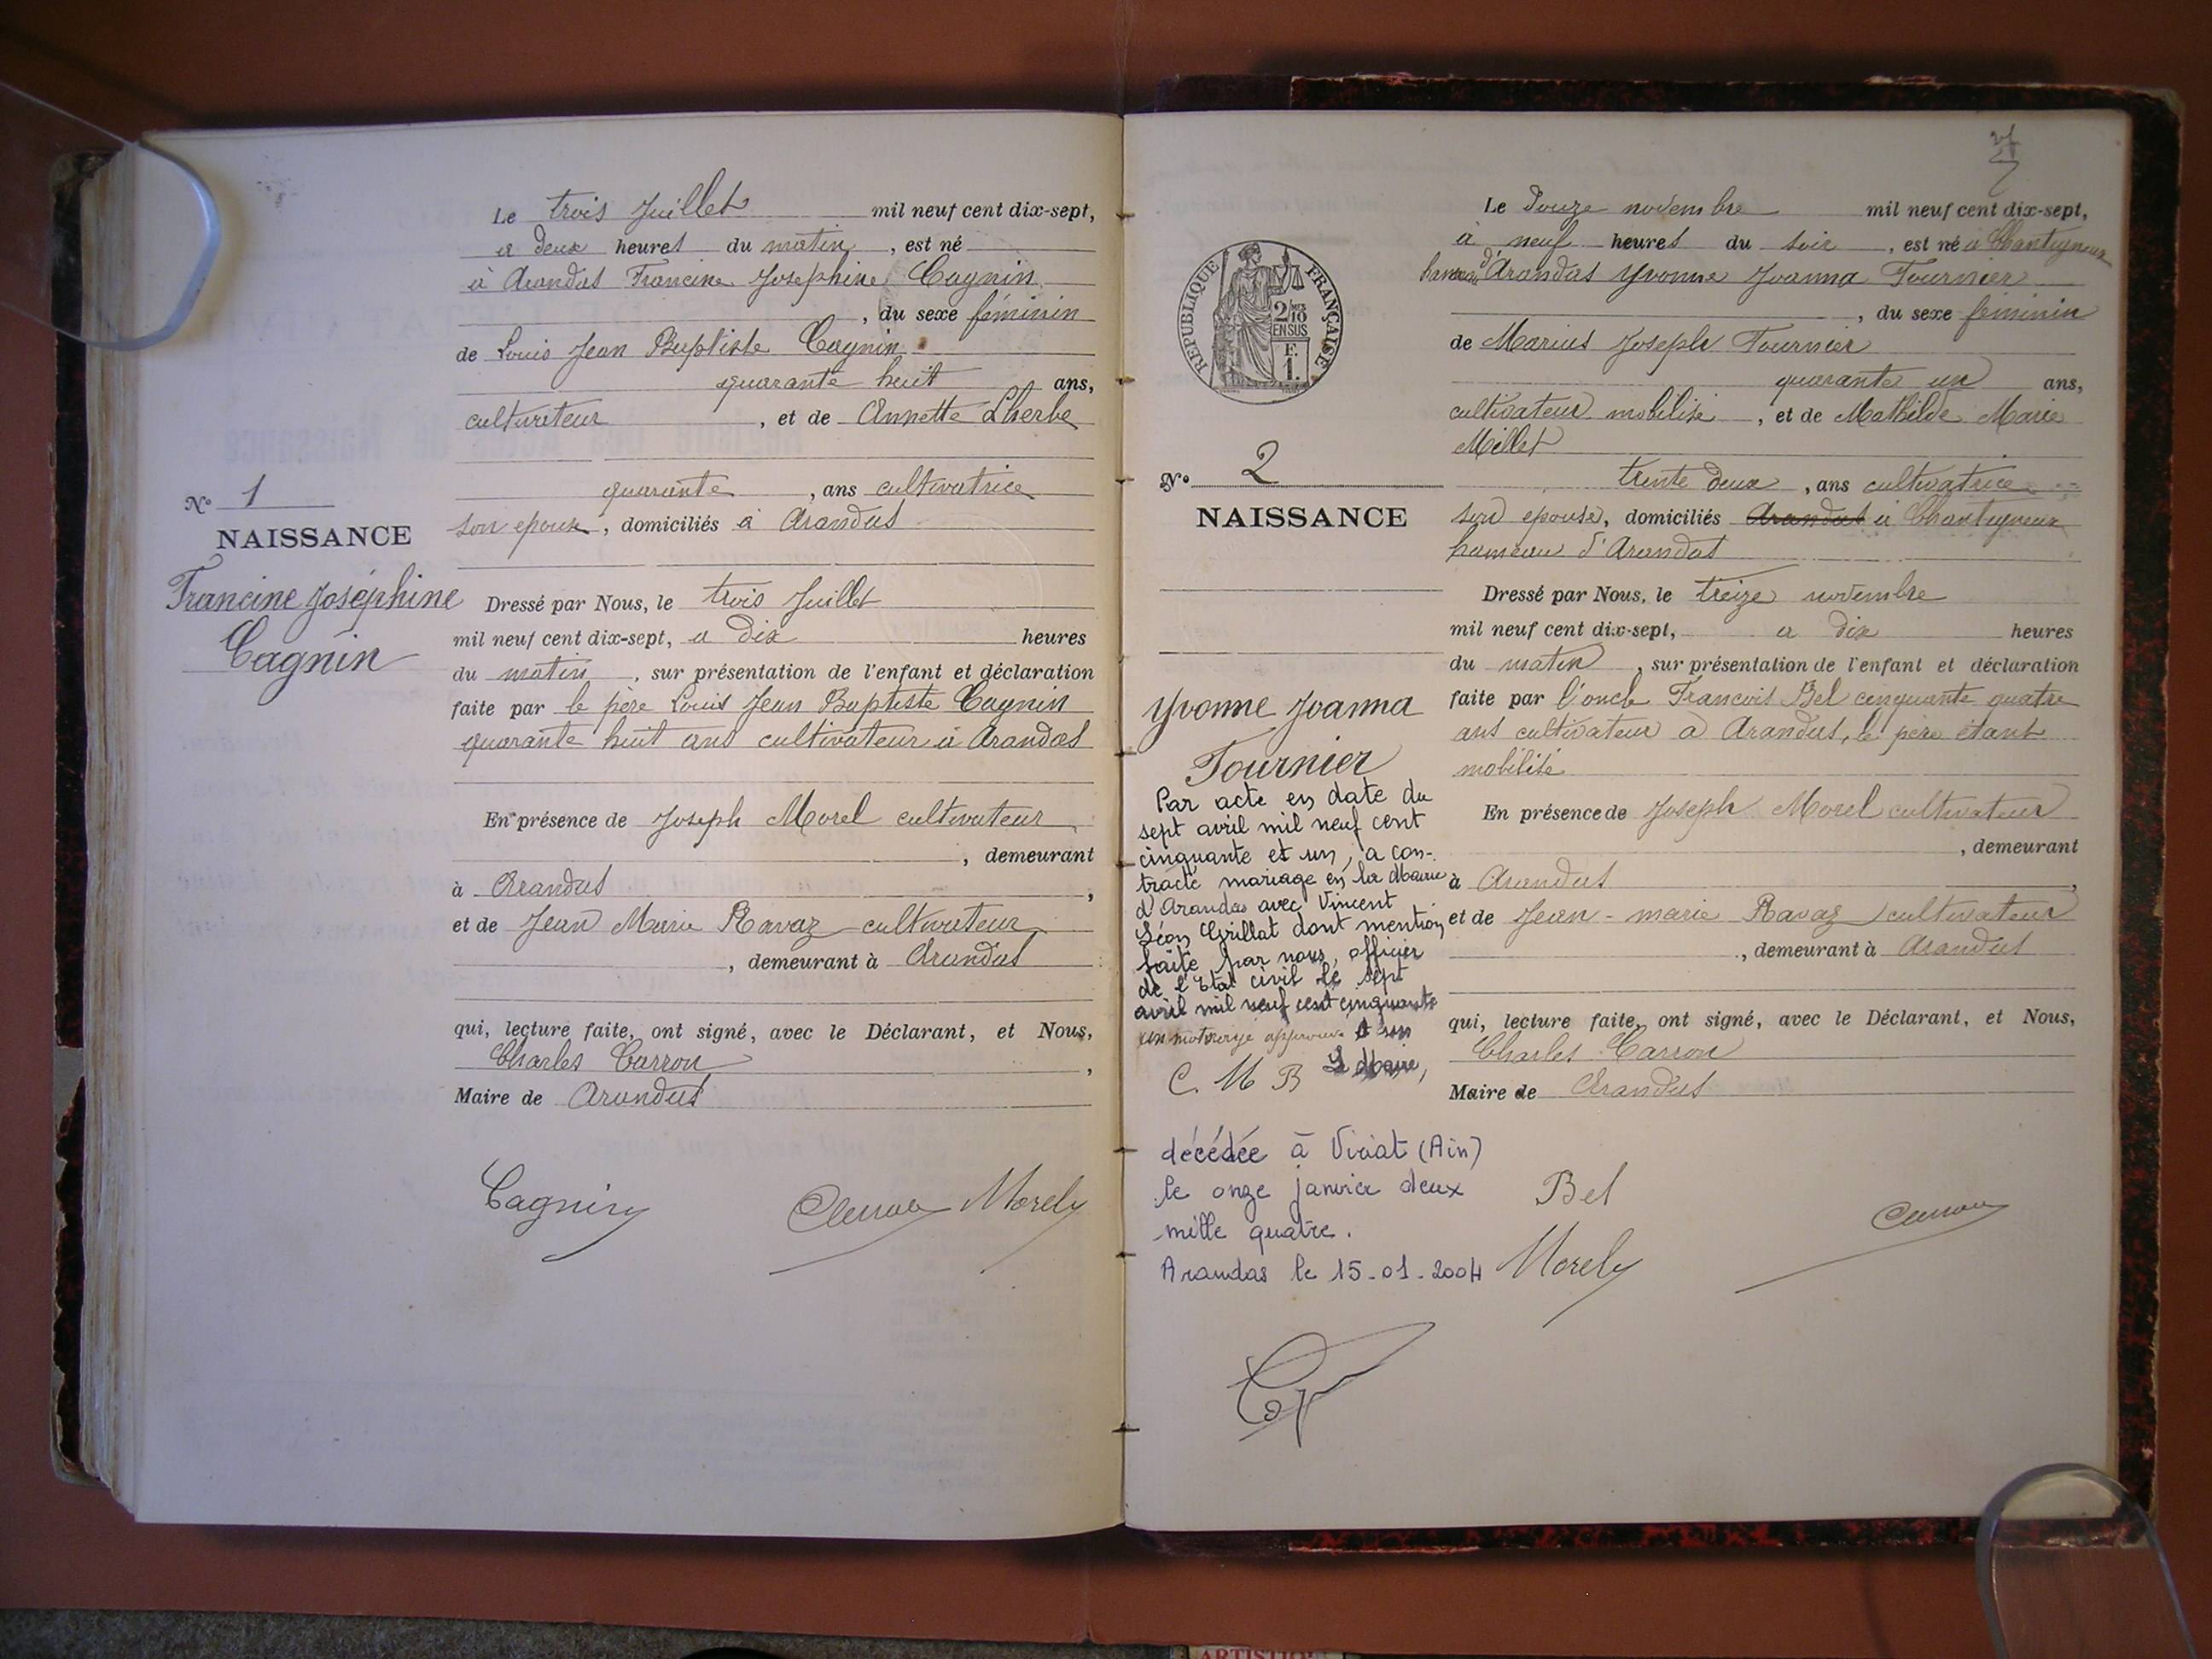 Le trois Juillet mil neuf cent dix-sept,
a deux heures du matin, est né
à Arandas Francine Josephine Cagnin
, du sexe féminin
de Louis Jean Baptiste Cagnin
quarante huit ans,
cultivateur, et de Annette Lherbe
quarante, ans cultivatrice
son epouse, domiciliés à Arandas
N° 1
NAISSANCE
Francine Joséphine
Cagnin
Dressé par Nous, le trois Juillet
mil neuf cent dix-sept, a dix heures
du matin, sur présentation de l'enfant et déclaration
faite par le père Louis Jean Baptiste Cagnin
quarante huit ans cultivateur à Arandas
En présence de Joseph Morel cultivateur
, demeurant
à Arandas,
et de Jean Marie Ravaz cultivateur
, demeurant à Arandas
qui, lecture faite, ont signé, avec le Déclarant, et Nous,
Charles Carron,
Maire de Arandas
Cagnin Carron Morel
RÉPUBLIQUE FRANÇAISE
2/10
EN SUS
F.
1.
N° 2
NAISSANCE
Yvonne Joanna
Fournier
Par acte en date du
sept avril mil neuf cent
cinquante et un, a con-
tracté mariage en la Mairie
d'Arandas avec Vincent
Léon Grillat dont mention
faite par nous, officier
de l'Etat civil le sept
avril mil neuf cent cinquante
et un
un mot rayé approuvé
C. M B Le Maire,
décédée à Viriat (Ain)
le onze janvier deux
mille quatre.
Arandas le 15-01-2004
Le douze novembre mil neuf cent dix-sept,
à neuf heures du soir, est né à Chantigneux
hameau d'Arandas Yvonne Joanna Fournier
, du sexe féminin
de Marius Joseph Fournier
quarante un ans,
cultivateur mobilisé, et de Mathilde Marie
Millet
trente deux, ans cultivatrice
son epouse, domiciliés Arandas à Chantigneux
hameau d'Arandas
Dressé par Nous, le treize novembre
mil neuf cent dix-sept, a dix heures
du matin, sur présentation de l'enfant et déclaration
faite par l'oncle Francois Bel cinquante quatre
ans cultivateur a Arandas, le père étant
mobilisé
En présence de Joseph Morel cultivateur
, demeurant
à Arandas,
et de Jean-marie Ravaz cultivateur
, demeurant à Arandas
qui, lecture faite, ont signé, avec le Déclarant, et Nous,
Charles Carron
Maire de Arandas
Bel
Carron
Morel
ARTISTIQU